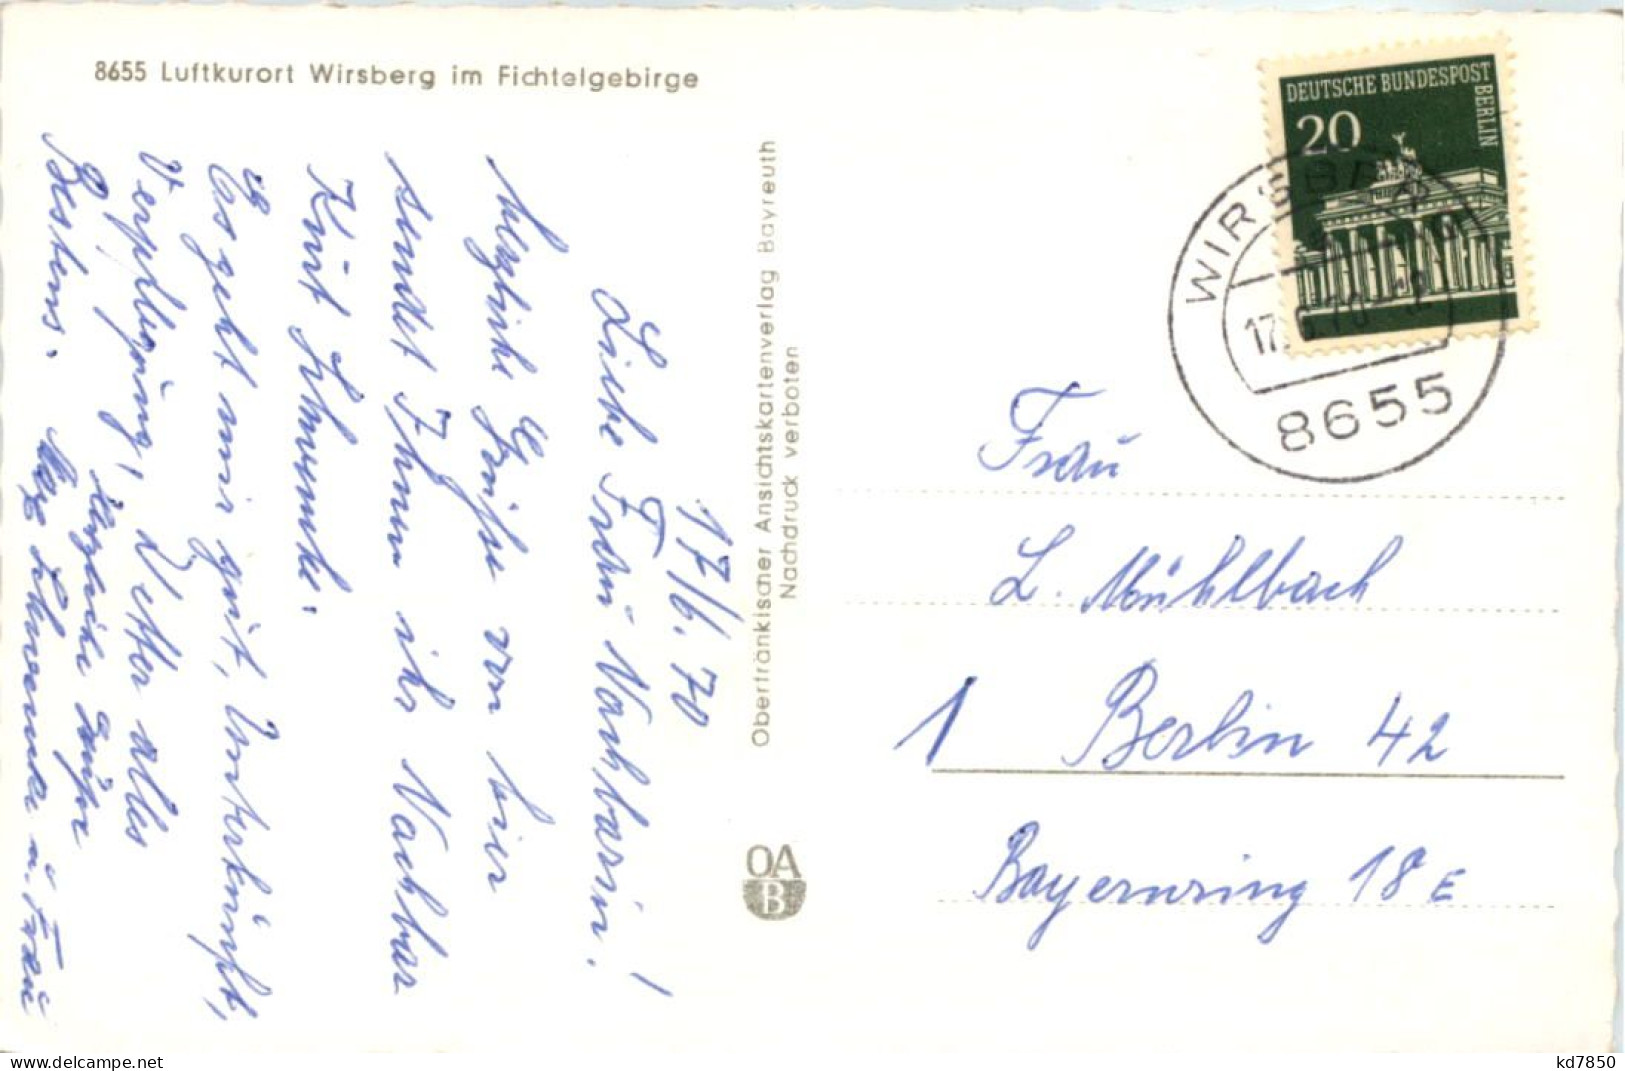 8655 Luftkurort Wirsberg im Fichtelgebirge
17/6.70
Liebe Frau Nachbarin!
herzliche Grüße von hier
sendet Ihnen ihr Nachbar
Kurt Schwenke.
Es geht mir gut, Unterkunft,
Verpflegung, Wetter alles
Bestens.
Herzliche Grüße
Schwenke u. Frau
Oberfränkischer Ansichtskartenverlag Bayreuth
Nachdruck verboten
OA
B
DEUTSCHE BUNDESPOST
BERLIN
20
WIRSBERG
17.6.70
8655
Frau
L. Mühlbach
1 Berlin 42
Bayernring 18 E
kd7850